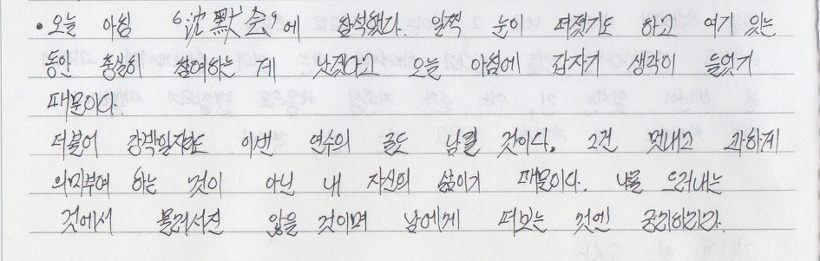 • 오늘 아침 '沈默会'에 참석했다. 일찍 눈이 떠졌기도 하고 여기 있는
동안 충실히 참여하는 게 낫겠다고 오늘 아침에 갑자기 생각이 들었기
때문이다.
더불어 강박일지라도 이번 연수의 글도 남길 것이다. 그건 멋내고 과하게
의미부여 하는 것이 아닌 내 자신의 삶이기 때문이다. 나를 드러내는
것에서 물러서진 않을 것이며 남에게 떠보는 것엔